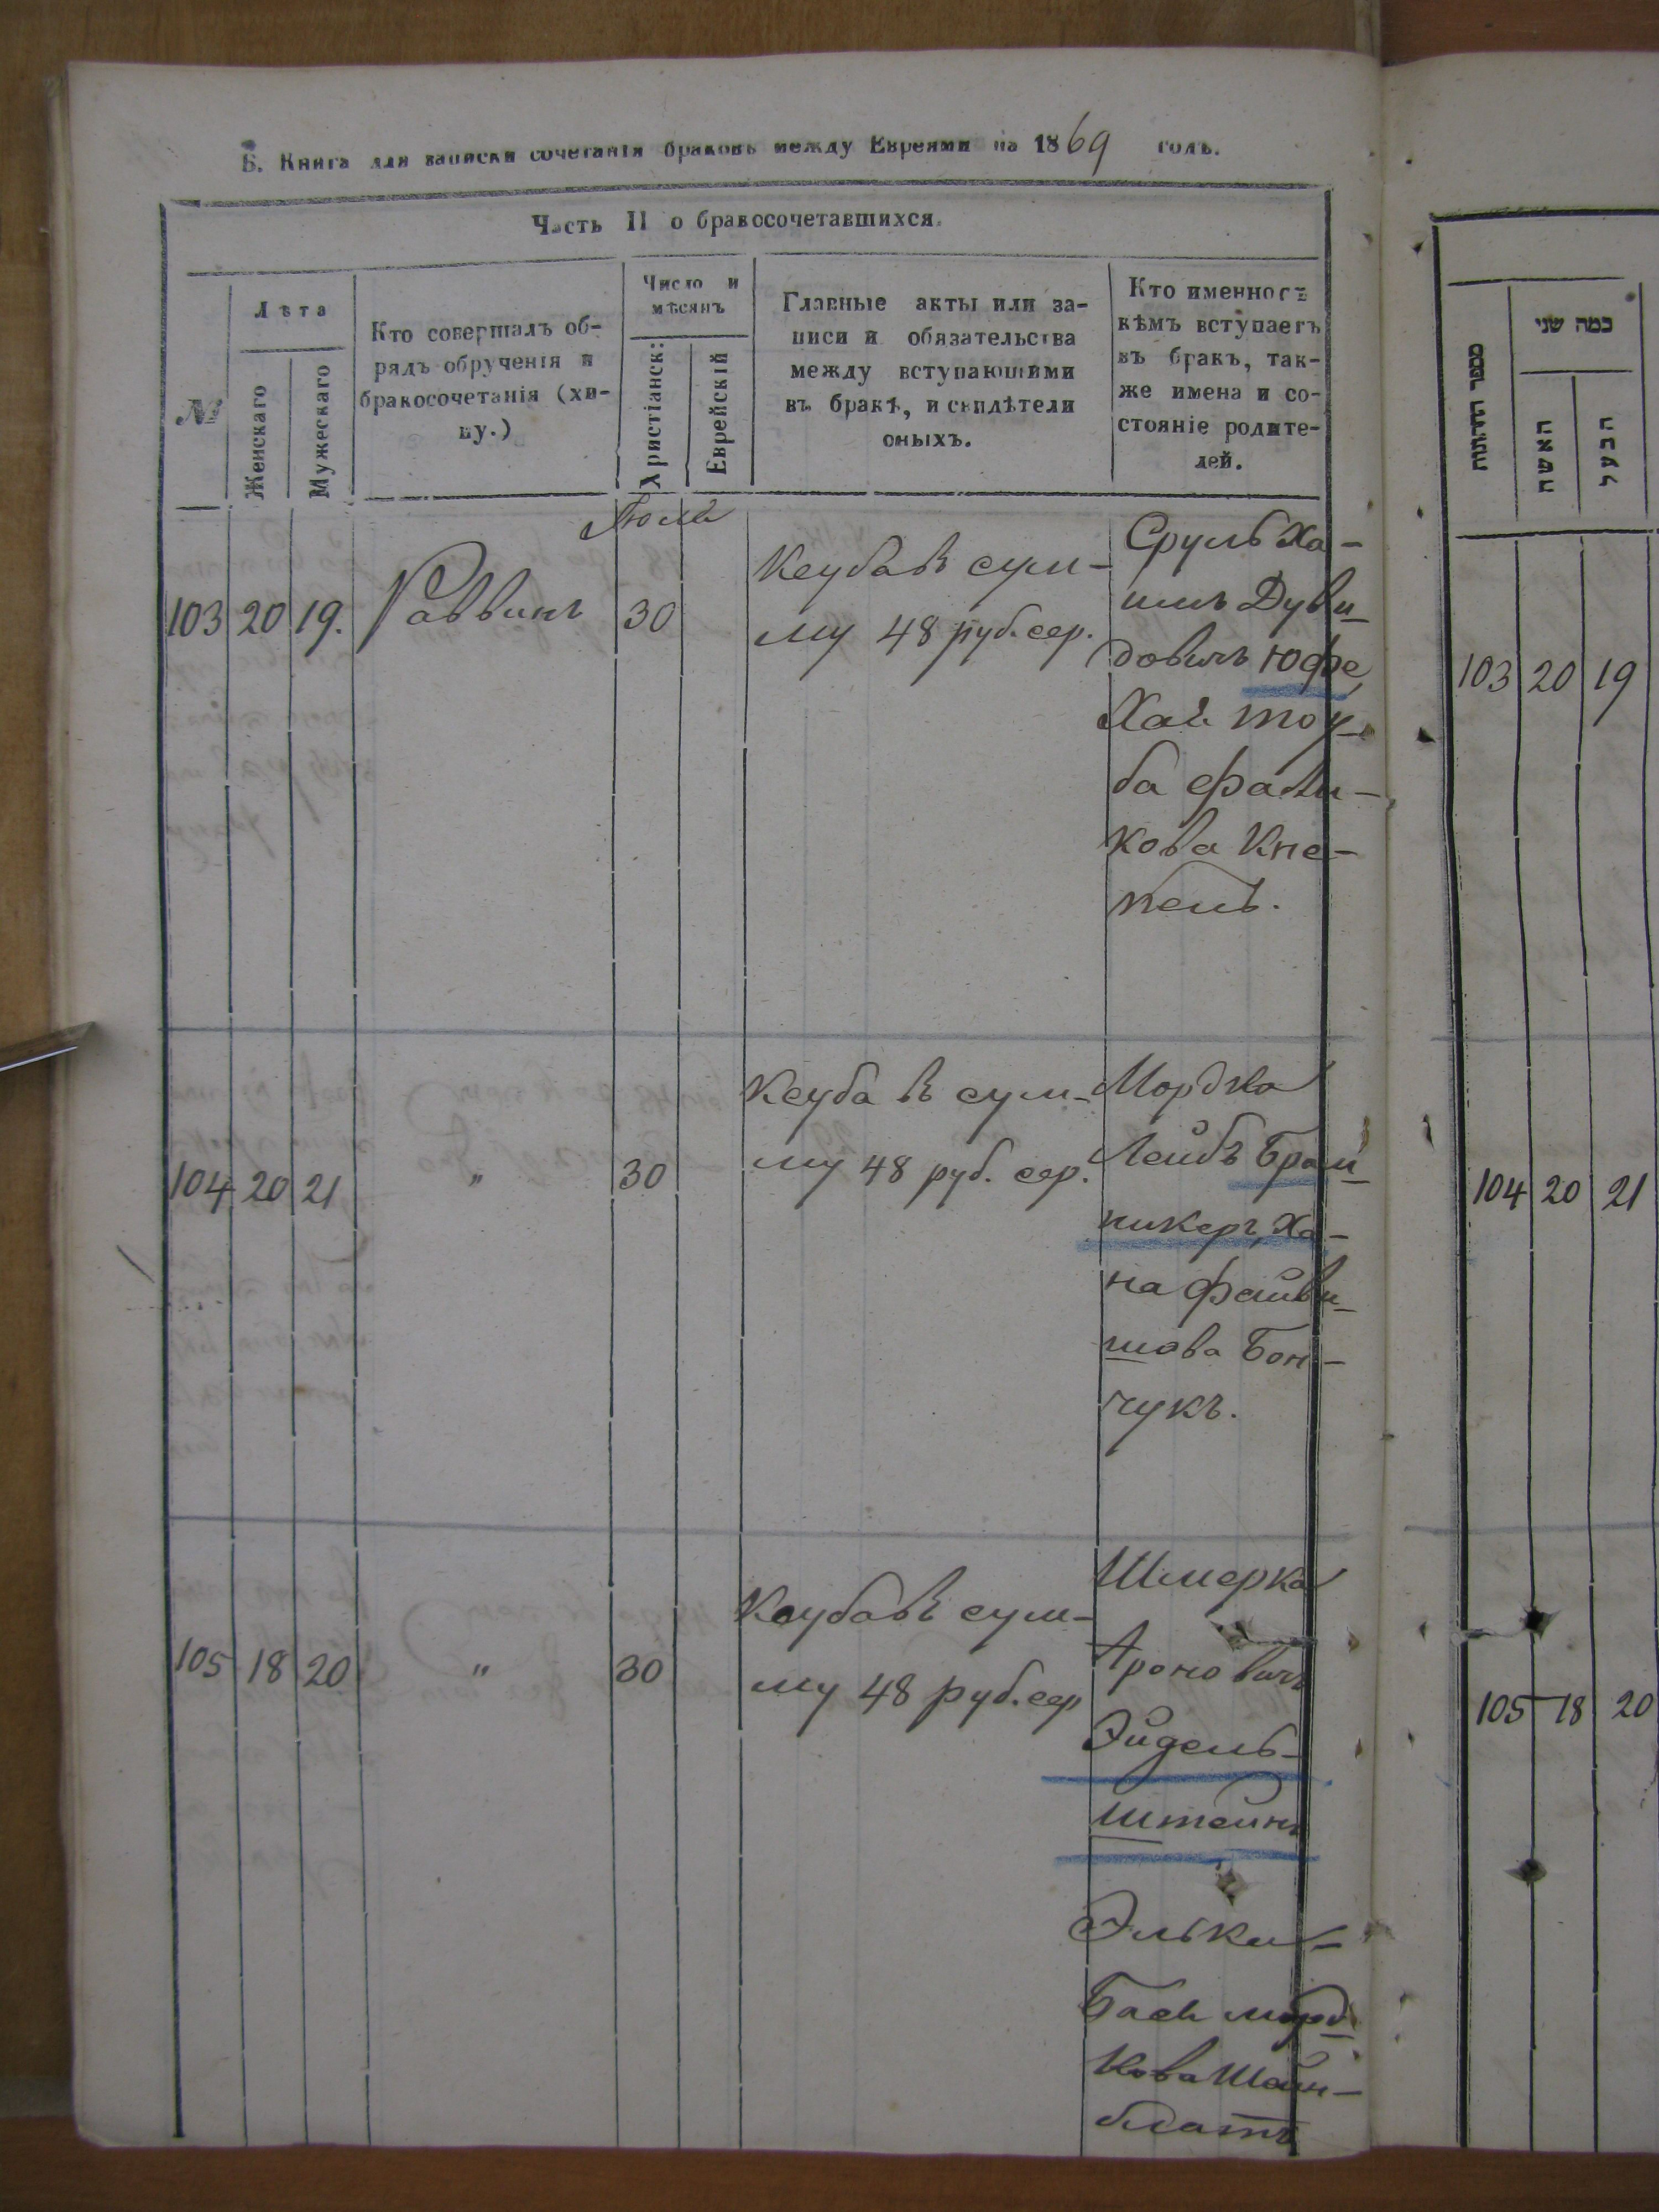 Б. Книга для записки сочетанія браковъ между Евреями на 1869 годъ.
Часть II о бракосочетавшихся.
№
Лѣта
Женскаго
Мужескаго
Кто совершалъ об-
рядъ обрученія и
бракосочетанія (хи-
пу.)
Число и
мѣсяцъ
Христіанск:
Еврейскій
Главные акты или за-
писи и обязательства
между вступающими
въ бракъ, и свидѣтели
оныхъ.
Кто именно съ
кѣмъ вступаетъ
въ бракъ, так-
же имена и со-
стояніе родите-
лей.
Іюля
103 20 19. Раввинъ 30
Ксуба въ сум-
му 48 руб. сер.
Сруль Ха-
имъ Дуви-
довичъ Юфе,
Хая тоу-
ба Фали-
кова Кне-
пель.
104 20 21 " 30
Ксуба въ сум-
му 48 руб. сер.
Мордко
Лейбъ
никеръ, Ха-
на Файви-
шова Бон-
чукъ.
105 18 20 " 30
Ксуба въ сум-
му 48 руб. сер
Шмерко
Ароновичъ
Эйдель-
штейнъ
Элька-
Бася Морд-
кова Шейн-
блатъ
מספר החתונות
כמה שני
האשה
הבעל
103 20 19
104 20 21
105 18 20